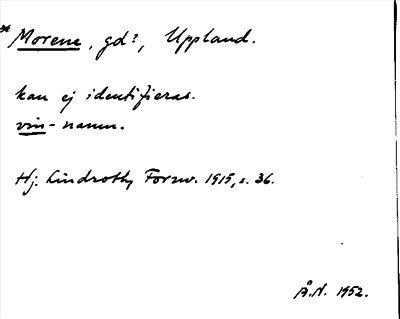 *Morene, gd?, Uppland.
kan ej identifieras.
vin-namn.
Hj. Lindroth, Fornv. 1915, s. 36.
Å.N. 1952.